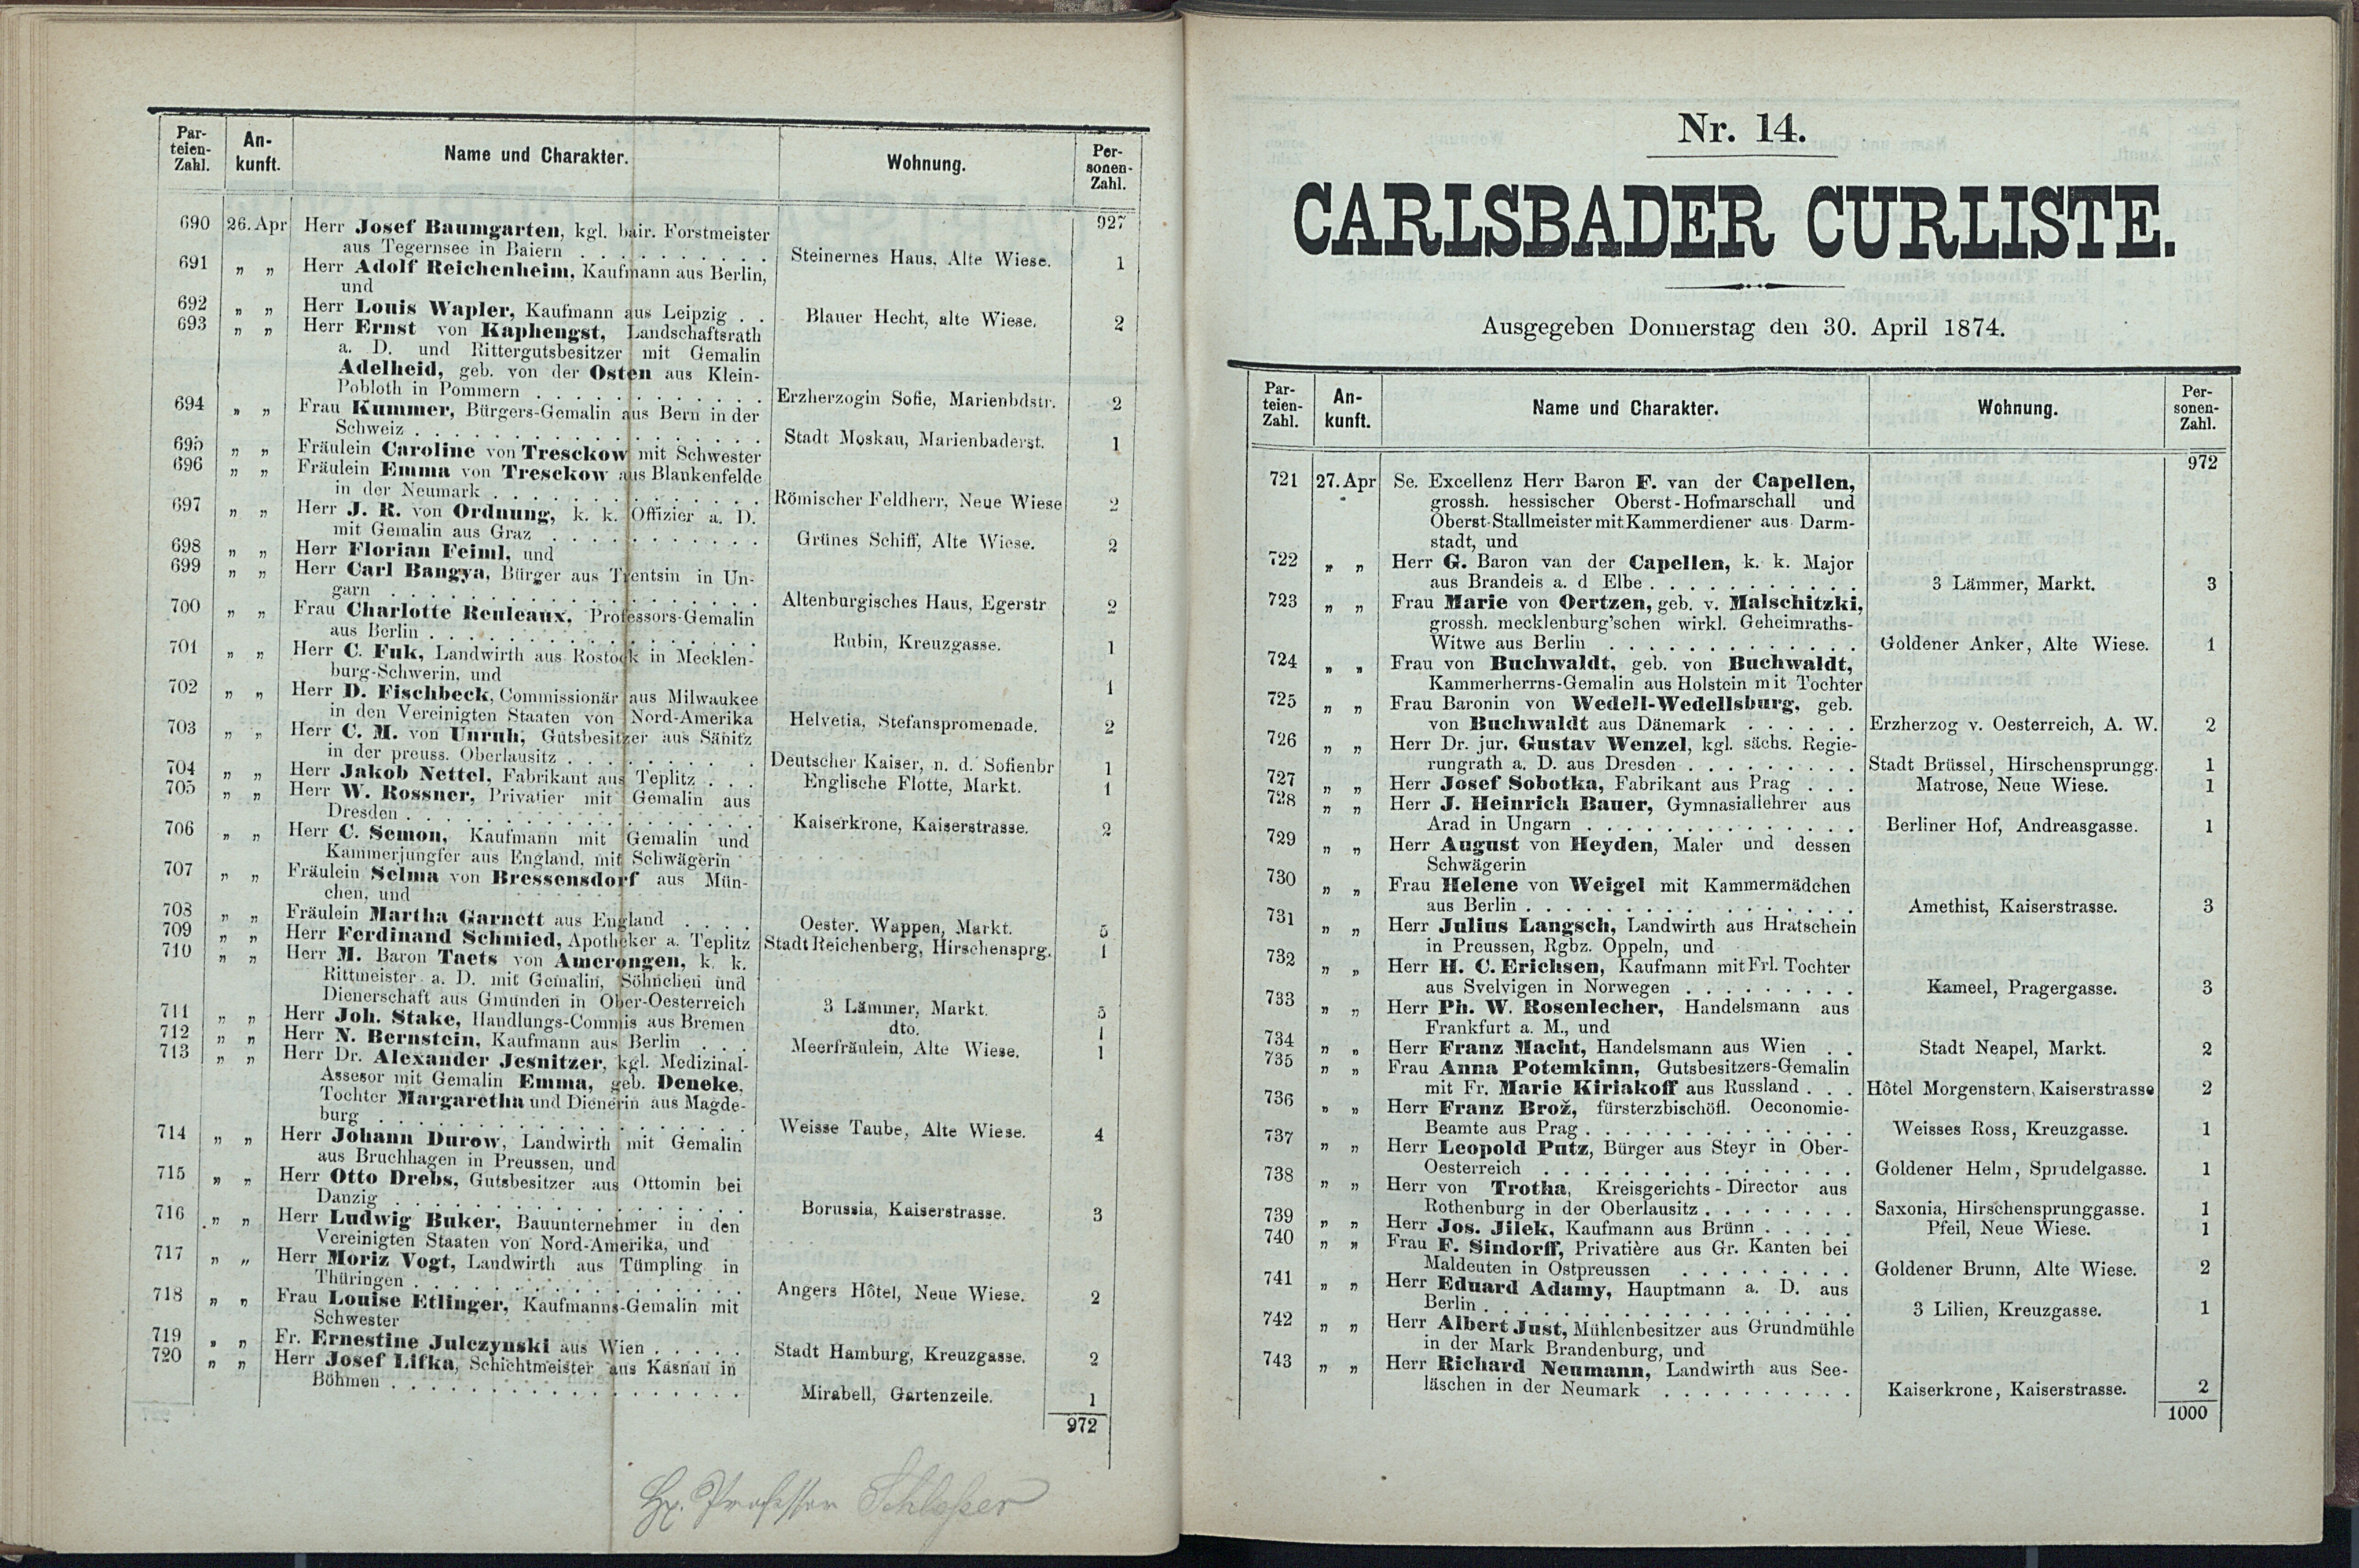 Par-
teien-
Zahl.
An-
kunft.
Name und Charakter.
Wohnung.
Per-
sonen-
Zahl.
927
690 26. Apr Herr Josef Baumgarten, kgl. bair. Forstmeister
aus Tegernsee in Baiern . . . . . . . . . . Steinernes Haus, Alte Wiese. 1
691 „ „ Herr Adolf Reichenheim, Kaufmann aus Berlin,
und
692 „ „ Herr Louis Wapler, Kaufmann aus Leipzig . . Blauer Hecht, alte Wiese. 2
693 „ „ Herr Ernst von Kaphengst, Landschaftsrath
a. D. und Rittergutsbesitzer mit Gemalin
Adelheid, geb. von der Osten aus Klein-
Pobloth in Pommern . . . . . . . . . . . . Erzherzogin Sofie, Marienbdstr. 2
694 „ „ Frau Kummer, Bürgers-Gemalin aus Bern in der
Schweiz . . . . . . . . . . . . . . . . . Stadt Moskau, Marienbaderst. 1
695 „ „ Fräulein Caroline von Tresckow mit Schwester
696 „ „ Fräulein Emma von Tresckow aus Blankenfelde
in der Neumark . . . . . . . . . . . . . Römischer Feldherr, Neue Wiese 2
697 „ „ Herr J. R. von Ordnung, k. k. Offizier a. D.
mit Gemalin aus Graz . . . . . . . . . . . Grünes Schiff, Alte Wiese. 2
698 „ „ Herr Florian Feiml, und
699 „ „ Herr Carl Bangya, Bürger aus Trentsin in Un-
garn . . . . . . . . . . . . . . . . . . Altenburgisches Haus, Egerstr 2
700 „ „ Frau Charlotte Reuleaux, Professors-Gemalin
aus Berlin . . . . . . . . . . . . . . . . Rubin, Kreuzgasse. 1
701 „ „ Herr C. Fuk, Landwirth aus Rostock in Mecklen-
burg-Schwerin, und 1
702 „ „ Herr D. Fischbeck, Commissionär aus Milwaukee
in den Vereinigten Staaten von Nord-Amerika Helvetia, Stefanspromenade. 2
703 „ „ Herr C. M. von Unruh, Gutsbesitzer aus Sänitz
in der preuss. Oberlausitz . . . . . . . . . Deutscher Kaiser, n. d. Sofienbr 1
704 „ „ Herr Jakob Nettel, Fabrikant aus Teplitz . . . Englische Flotte, Markt. 1
705 „ „ Herr W. Rossner, Privatier mit Gemalin aus
Dresden . . . . . . . . . . . . . . . . . Kaiserkrone, Kaiserstrasse. 2
706 „ „ Herr C. Semon, Kaufmann mit Gemalin und
Kammerjungfer aus England, mit Schwägerin
707 „ „ Fräulein Selma von Bressensdorf aus Mün-
chen, und
708 „ „ Fräulein Martha Garnett aus England . . . . Oester. Wappen, Markt. 5
709 „ „ Herr Ferdinand Schmied, Apotheker a. Teplitz Stadt Reichenberg, Hirschensprg. 1
710 „ „ Herr M. Baron Taets von Amerongen, k. k.
Rittmeister a. D. mit Gemalin, Söhnchen und
Dienerschaft aus Gmunden in Ober-Oesterreich 3 Lämmer, Markt. 5
711 „ „ Herr Joh. Stake, Handlungs-Commis aus Bremen dto. 1
712 „ „ Herr N. Bernstein, Kaufmann aus Berlin . . . Meerfräulein, Alte Wiese. 1
713 „ „ Herr Dr. Alexander Jesnitzer, kgl. Medizinal-
Assesor mit Gemalin Emma, geb. Deneke,
Tochter Margaretha und Dienerin aus Magde-
burg . . . . . . . . . . . . . . . . . . Weisse Taube, Alte Wiese. 4
714 „ „ Herr Johann Durow, Landwirth mit Gemalin
aus Bruchhagen in Preussen, und
715 „ „ Herr Otto Drebs, Gutsbesitzer aus Ottomin bei
Danzig . . . . . . . . . . . . . . . . . Borussia, Kaiserstrasse. 3
716 „ „ Herr Ludwig Buker, Bauunternehmer in den
Vereinigten Staaten von Nord-Amerika, und
717 „ „ Herr Moriz Vogt, Landwirth aus Tümpling in
Thüringen . . . . . . . . . . . . . . . . Angers Hôtel, Neue Wiese. 2
718 „ „ Frau Louise Etlinger, Kaufmanns-Gemalin mit
Schwester
719 „ „ Fr. Ernestine Julczynski aus Wien . . . . . Stadt Hamburg, Kreuzgasse. 2
720 „ „ Herr Josef Lifka, Schichtmeister aus Kasnau in
Böhmen . . . . . . . . . . . . . . . . . Mirabell, Gartenzeile. 1
972
Hr. Professor Schlosser
Nr. 14.
CARLSBADER CURLISTE.
Ausgegeben Donnerstag den 30. April 1874.
Par-
teien-
Zahl.
An-
kunft.
Name und Charakter.
Wohnung.
Per-
sonen-
Zahl.
972
721 27. Apr Se. Excellenz Herr Baron F. van der Capellen,
grossh. hessischer Oberst-Hofmarschall und
Oberst-Stallmeister mit Kammerdiener aus Darm-
stadt, und
722 „ „ Herr G. Baron van der Capellen, k. k. Major
aus Brandeis a. d Elbe . . . . . . . . . . . 3 Lämmer, Markt. 3
723 „ „ Frau Marie von Oertzen, geb. v. Malschitzki,
grossh. mecklenburg'schen wirkl. Geheimraths-
Witwe aus Berlin . . . . . . . . . . . . . Goldener Anker, Alte Wiese. 1
724 „ „ Frau von Buchwaldt, geb. von Buchwaldt,
Kammerherrns-Gemalin aus Holstein mit Tochter
725 „ „ Frau Baronin von Wedell-Wedellsburg, geb.
von Buchwaldt aus Dänemark . . . . . . Erzherzog v. Oesterreich, A. W. 2
726 „ „ Herr Dr. jur. Gustav Wenzel, kgl. sächs. Regie-
rungrath a. D. aus Dresden . . . . . . . . . Stadt Brüssel, Hirschensprungg. 1
727 „ „ Herr Josef Sobotka, Fabrikant aus Prag . . . Matrose, Neue Wiese. 1
728 „ „ Herr J. Heinrich Bauer, Gymnasiallehrer aus
Arad in Ungarn . . . . . . . . . . . . . . Berliner Hof, Andreasgasse. 1
729 „ „ Herr August von Heyden, Maler und dessen
Schwägerin
730 „ „ Frau Helene von Weigel mit Kammermädchen
aus Berlin . . . . . . . . . . . . . . . . Amethist, Kaiserstrasse. 3
731 „ „ Herr Julius Langsch, Landwirth aus Hratschein
in Preussen, Rgbz. Oppeln, und
732 „ „ Herr H. C. Erichsen, Kaufmann mit Frl. Tochter
aus Svelvigen in Norwegen . . . . . . . . . Kameel, Pragergasse. 3
733 „ „ Herr Ph. W. Rosenlecher, Handelsmann aus
Frankfurt a. M., und
734 „ „ Herr Franz Macht, Handelsmann aus Wien . . Stadt Neapel, Markt. 2
735 „ „ Frau Anna Potemkinn, Gutsbesitzers-Gemalin
mit Fr. Marie Kiriakoff aus Russland . . . Hôtel Morgenstern, Kaiserstrasse 2
736 „ „ Herr Franz Brož, fürsterzbischöfl. Oeconomie-
Beamte aus Prag . . . . . . . . . . . . . Weisses Ross, Kreuzgasse. 1
737 „ „ Herr Leopold Putz, Bürger aus Steyr in Ober-
Oesterreich . . . . . . . . . . . . . . . Goldener Helm, Sprudelgasse. 1
738 „ „ Herr von Trotha, Kreisgerichts-Director aus
Rothenburg in der Oberlausitz . . . . . . . . Saxonia, Hirschensprunggasse. 1
739 „ „ Herr Jos. Jilek, Kaufmann aus Brünn . . . . . Pfeil, Neue Wiese. 1
740 „ „ Frau F. Sindorff, Privatière aus Gr. Kanten bei
Maldeuten in Ostpreussen . . . . . . . . . Goldener Brunn, Alte Wiese. 2
741 „ „ Herr Eduard Adamy, Hauptmann a. D. aus
Berlin . . . . . . . . . . . . . . . . . . 3 Lilien, Kreuzgasse. 1
742 „ „ Herr Albert Just, Mühlenbesitzer aus Grundmühle
in der Mark Brandenburg, und
743 „ „ Herr Richard Neumann, Landwirth aus See-
läschen in der Neumark . . . . . . . . . . Kaiserkrone, Kaiserstrasse. 2
1000